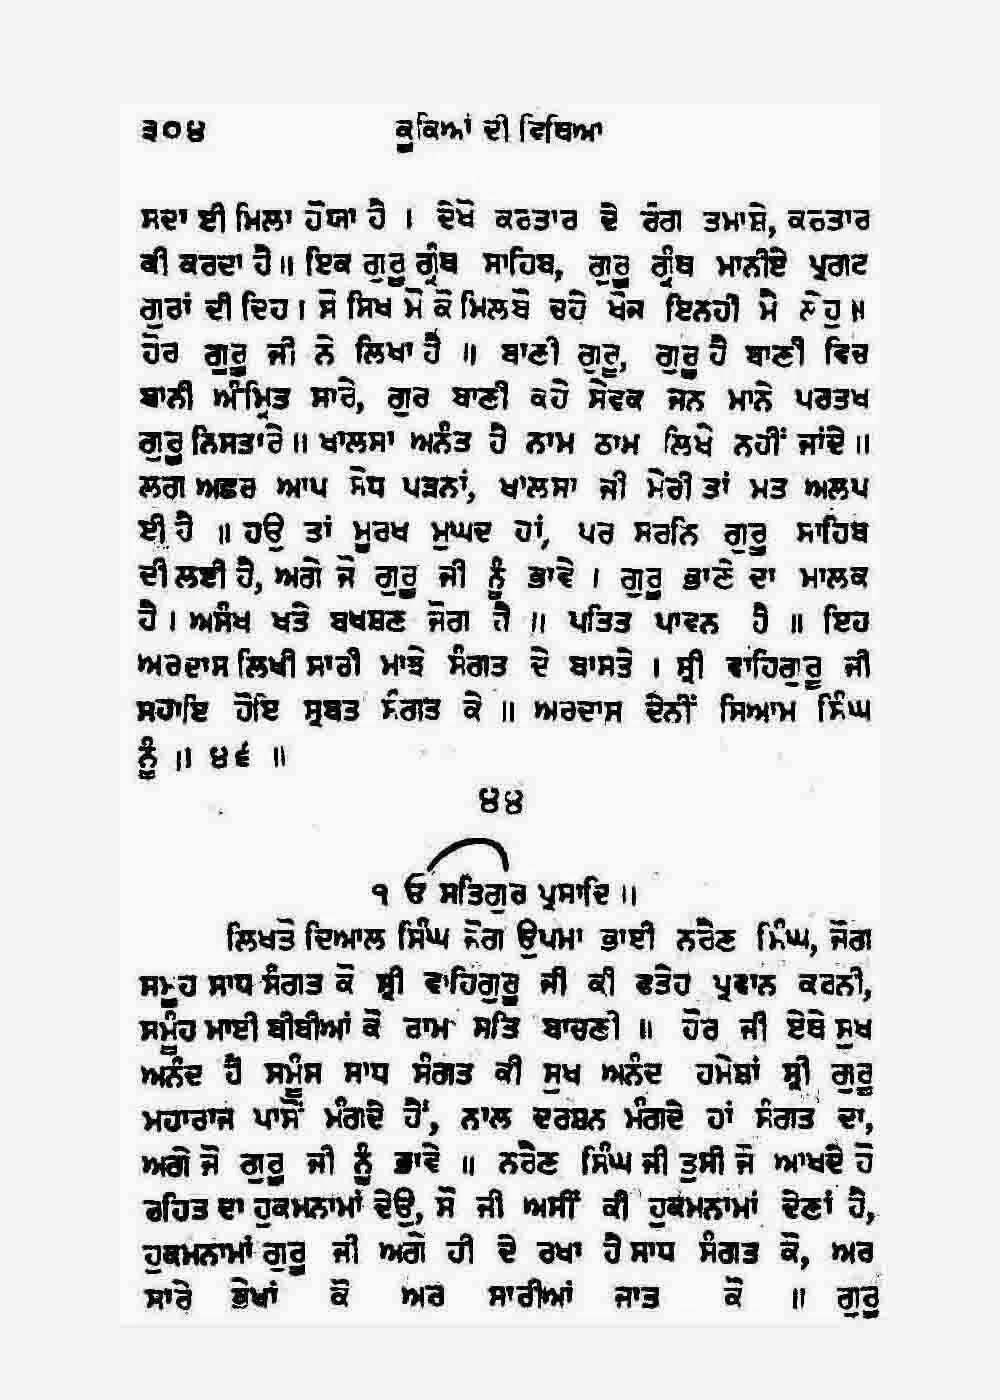 ੩੦੪ ਕੂਕਿਆਂ ਦੀ ਵਿਥਿਆ
ਸਦਾ ਈ ਮਿਲਾ ਹੋਯਾ ਹੈ । ਦੇਖੋ ਕਰਤਾਰ ਦੇ ਰੰਗ ਤਮਾਸ਼ੇ, ਕਰਤਾਰ
ਕੀ ਕਰਦਾ ਹੈ ॥ ਇਕ ਗੁਰੂ ਗ੍ਰੰਥ ਸਾਹਿਬ, ਗੁਰੂ ਗ੍ਰੰਥ ਮਾਨੀਏ ਪ੍ਰਗਟ
ਗੁਰਾਂ ਦੀ ਦਿਹ । ਸੋ ਸਿਖ ਮੋ ਕੋ ਮਿਲਬੋ ਚਹੇ ਖੋਜ ਇਨਹੀਂ ਮੈ ਲੇਹੁ ॥
ਹੋਰ ਗੁਰੂ ਜੀ ਨੇ ਲਿਖਾ ਹੈ ॥ ਬਾਣੀ ਗੁਰੂ, ਗੁਰੂ ਹੈ ਬਾਣੀ ਵਿਚ
ਬਾਨੀ ਅੰਮ੍ਰਿਤ ਸਾਰੇ, ਗੁਰ ਬਾਣੀ ਕਹੇ ਸੇਵਕ ਜਨ ਮਾਨੇ ਪਰਤਖ
ਗੁਰੂ ਨਿਸਤਾਰੇ ॥ ਖਾਲਸਾ ਅਨੰਤ ਹੈ ਨਾਮ ਠਾਮ ਲਿਖੇ ਨਹੀਂ ਜਾਂਦੇ ॥
ਲਗ ਅਛਰ ਆਪ ਸੋਧ ਪੜਨਾਂ, ਖਾਲਸਾ ਜੀ ਮੇਰੀ ਤਾਂ ਮਤ ਅਲਪ
ਈ ਹੈ ॥ ਹਉ ਤਾਂ ਮੂਰਖ ਮੁਘਦ ਹਾਂ, ਪਰ ਸਰਨਿ ਗੁਰੂ ਸਾਹਿਬ
ਦੀ ਲਈ ਹੈ, ਅਗੇ ਜੋ ਗੁਰੂ ਜੀ ਨੂੰ ਭਾਵੇ । ਗੁਰੂ ਭਾਣੇ ਦਾ ਮਾਲਕ
ਹੈ । ਅਸੰਖ ਖਤੇ ਬਖਸ਼ਣ ਜੋਗ ਹੈ ॥ ਪਤਿਤ ਪਾਵਨ ਹੈ ॥ ਇਹ
ਅਰਦਾਸ ਲਿਖੀ ਸਾਰੀ ਮਾਝੇ ਸੰਗਤ ਦੇ ਬਾਸਤੇ । ਸ੍ਰੀ ਵਾਹਿਗੁਰੂ ਜੀ
ਸਹਾਇ ਹੋਇ ਸ੍ਰਬਤ ਸੰਗਤ ਕੇ ॥ ਅਰਦਾਸ ਦੇਨੀਂ ਸਿਆਮ ਸਿੰਘ
ਨੂੰ ॥ ੪੬ ॥
੪੪
੧ ਓ ਸਤਿਗੁਰ ਪ੍ਰਸਾਦਿ ॥
ਲਿਖਤੋ ਦਿਆਲ ਸਿੰਘ ਜੋਗ ਉਪਮਾ ਭਾਈ ਨਰੈਣ ਸਿੰਘ, ਜੋਗ
ਸਮੂਹ ਸਾਧ ਸੰਗਤ ਕੋ ਸ਼੍ਰੀ ਵਾਹਿਗੁਰੂ ਜੀ ਕੀ ਫਤੇਹ ਪ੍ਰਵਾਨ ਕਰਨੀ,
ਸਮੂੰਹ ਮਾਈ ਬੀਬੀਆਂ ਕੋ ਰਾਮ ਸਤਿ ਬਾਚਣੀ ॥ ਹੋਰ ਜੀ ਏਥੇ ਸੁਖ
ਅਨੰਦ ਹੈ ਸਮੂੰਸ ਸਾਧ ਸੰਗਤ ਕੀ ਸੁਖ ਅਨੰਦ ਹਮੇਸ਼ਾਂ ਸ਼੍ਰੀ ਗੁਰੂ
ਮਹਾਰਾਜ ਪਾਸੋਂ ਮੰਗਦੇ ਹੈਂ, ਨਾਲ ਦਰਸ਼ਨ ਮੰਗਦੇ ਹਾਂ ਸੰਗਤ ਦਾ,
ਅਗੇ ਜੋ ਗੁਰੂ ਜੀ ਨੂੰ ਭਾਵੇ ॥ ਨਰੈਣ ਸਿੰਘ ਜੀ ਤੁਸੀ ਜੋ ਆਖਦੇ ਹੋ
ਰਹਿਤ ਦਾ ਹੁਕਮਨਾਮਾਂ ਦੇਉ, ਸੋ ਜੀ ਅਸੀਂ ਕੀ ਹੁਕਮਨਾਮਾਂ ਦੇਣਾਂ ਹੈ,
ਹੁਕਮਨਾਮਾਂ ਗੁਰੂ ਜੀ ਅਗੇ ਹੀ ਦੇ ਰਖਾ ਹੈ ਸਾਧ ਸੰਗਤ ਕੋ, ਅਰ
ਸਾਰੇ ਭੇਖਾਂ ਕੋ ਅਰ ਸਾਰੀਆਂ ਜਾਤ ਕੋ ॥ ਗੁਰੂ